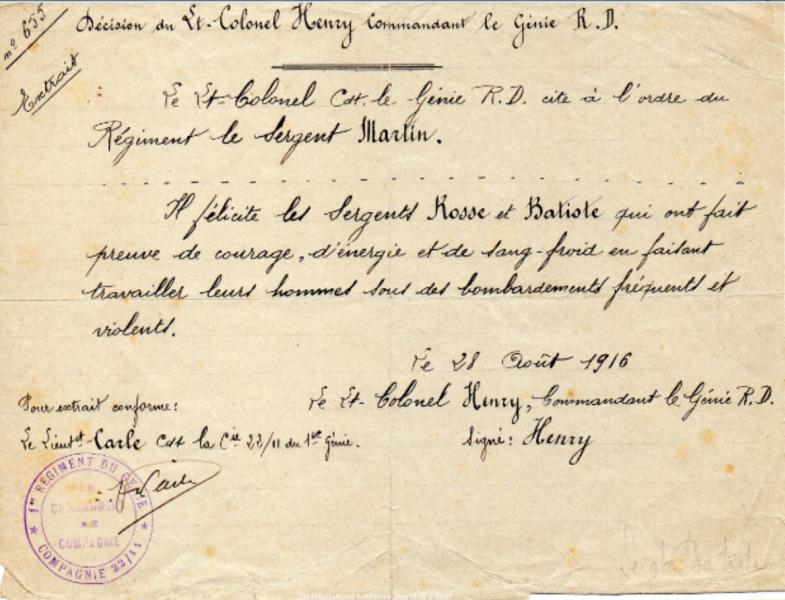 n° 655
Extrait
Décision du Lt-Colonel Henry Commandant le Génie R.D.
Le Lt-Colonel Cdt. le Génie R.D. cite à l'ordre du
Régiment le Sergent Martin.
Il félicite les Sergents Rosse et Batiste qui ont fait
preuve de courage, d'énergie et de sang-froid en faisant
travailler leurs hommes sous des bombardements fréquents et
violents.
Le 28 Août 1916
Pour extrait conforme:
Le Lt-Colonel Henry, Commandant le Génie R.D.
Le Lieutnt Carle Cdt la Cie 22/11 du 1er Génie.
Signé: Henry
Carle
1er RÉGIMENT DU GÉNIE
COMPAGNIE
COMPAGNIE 22/11
Sergt Batiste